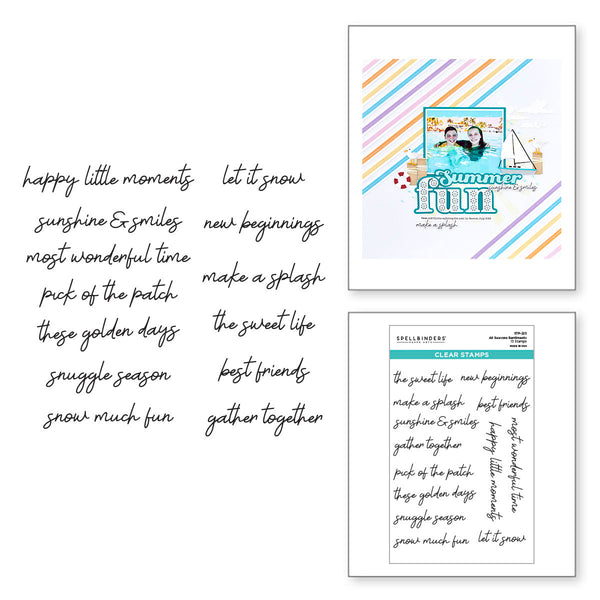 happy little moments
sunshine & smiles
most wonderful time
pick of the patch
these golden days
snuggle season
snow much fun
let it snow
new beginnings
make a splash
the sweet life
best friends
gather together
Summer
fun
sunshine & smiles
make a splash
SPELLBINDERS
All Seasons Sentiments
13 Stamps
CLEAR STAMPS
the sweet life
new beginnings
make a splash
best friends
sunshine & smiles
gather together
pick of the patch
these golden days
snuggle season
snow much fun
happy little moments
most wonderful time
let it snow